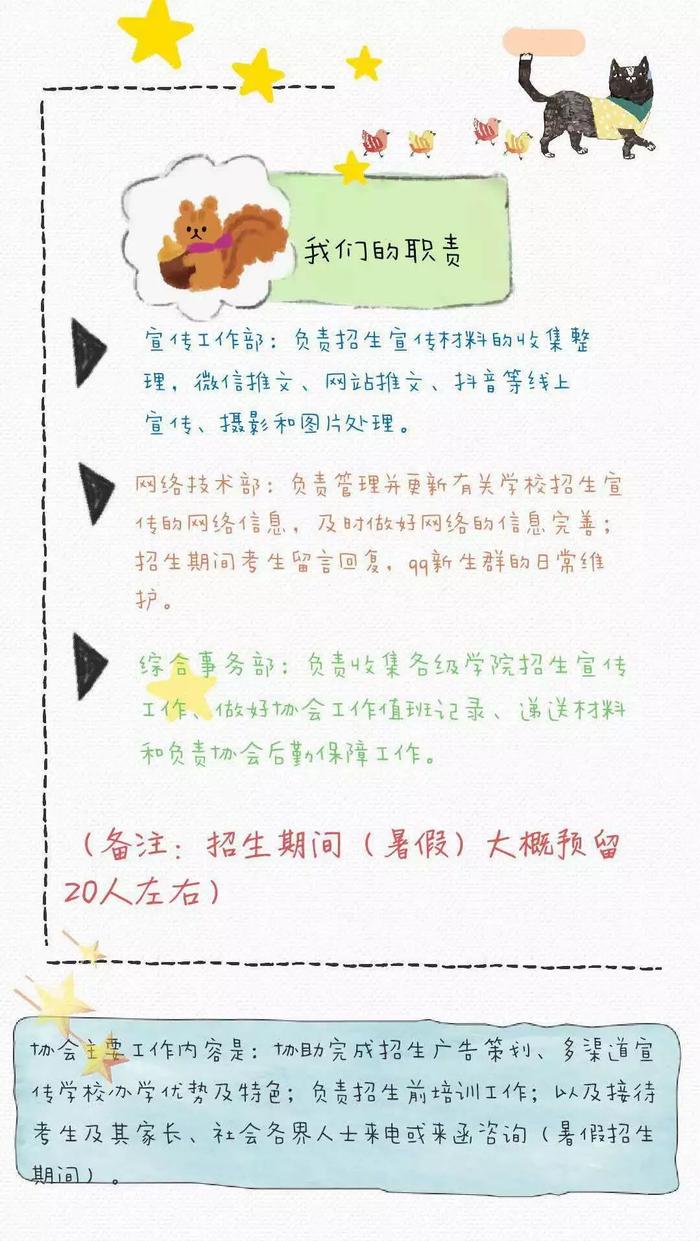 我们的职责
宣传工作部：负责招生宣传材料的收集整
理，微信推文、网站推文、抖音等线上
宣传、摄影和图片处理。
网络技术部：负责管理并更新有关学校招生宣
传的网络信息，及时做好网络的信息完善；
招生期间考生留言回复，qq新生群的日常维
护。
综合事务部：负责收集各级学院招生宣传
工作、做好协会工作值班记录、递送材料
和负责协会后勤保障工作。
（备注：招生期间（暑假）大概预留
20人左右）
协会主要工作内容是：协助完成招生广告策划、多渠道宣
传学校办学优势及特色；负责招生前培训工作；以及接待
考生及其家长、社会各界人士来电或来函咨询（暑假招生
期间）。